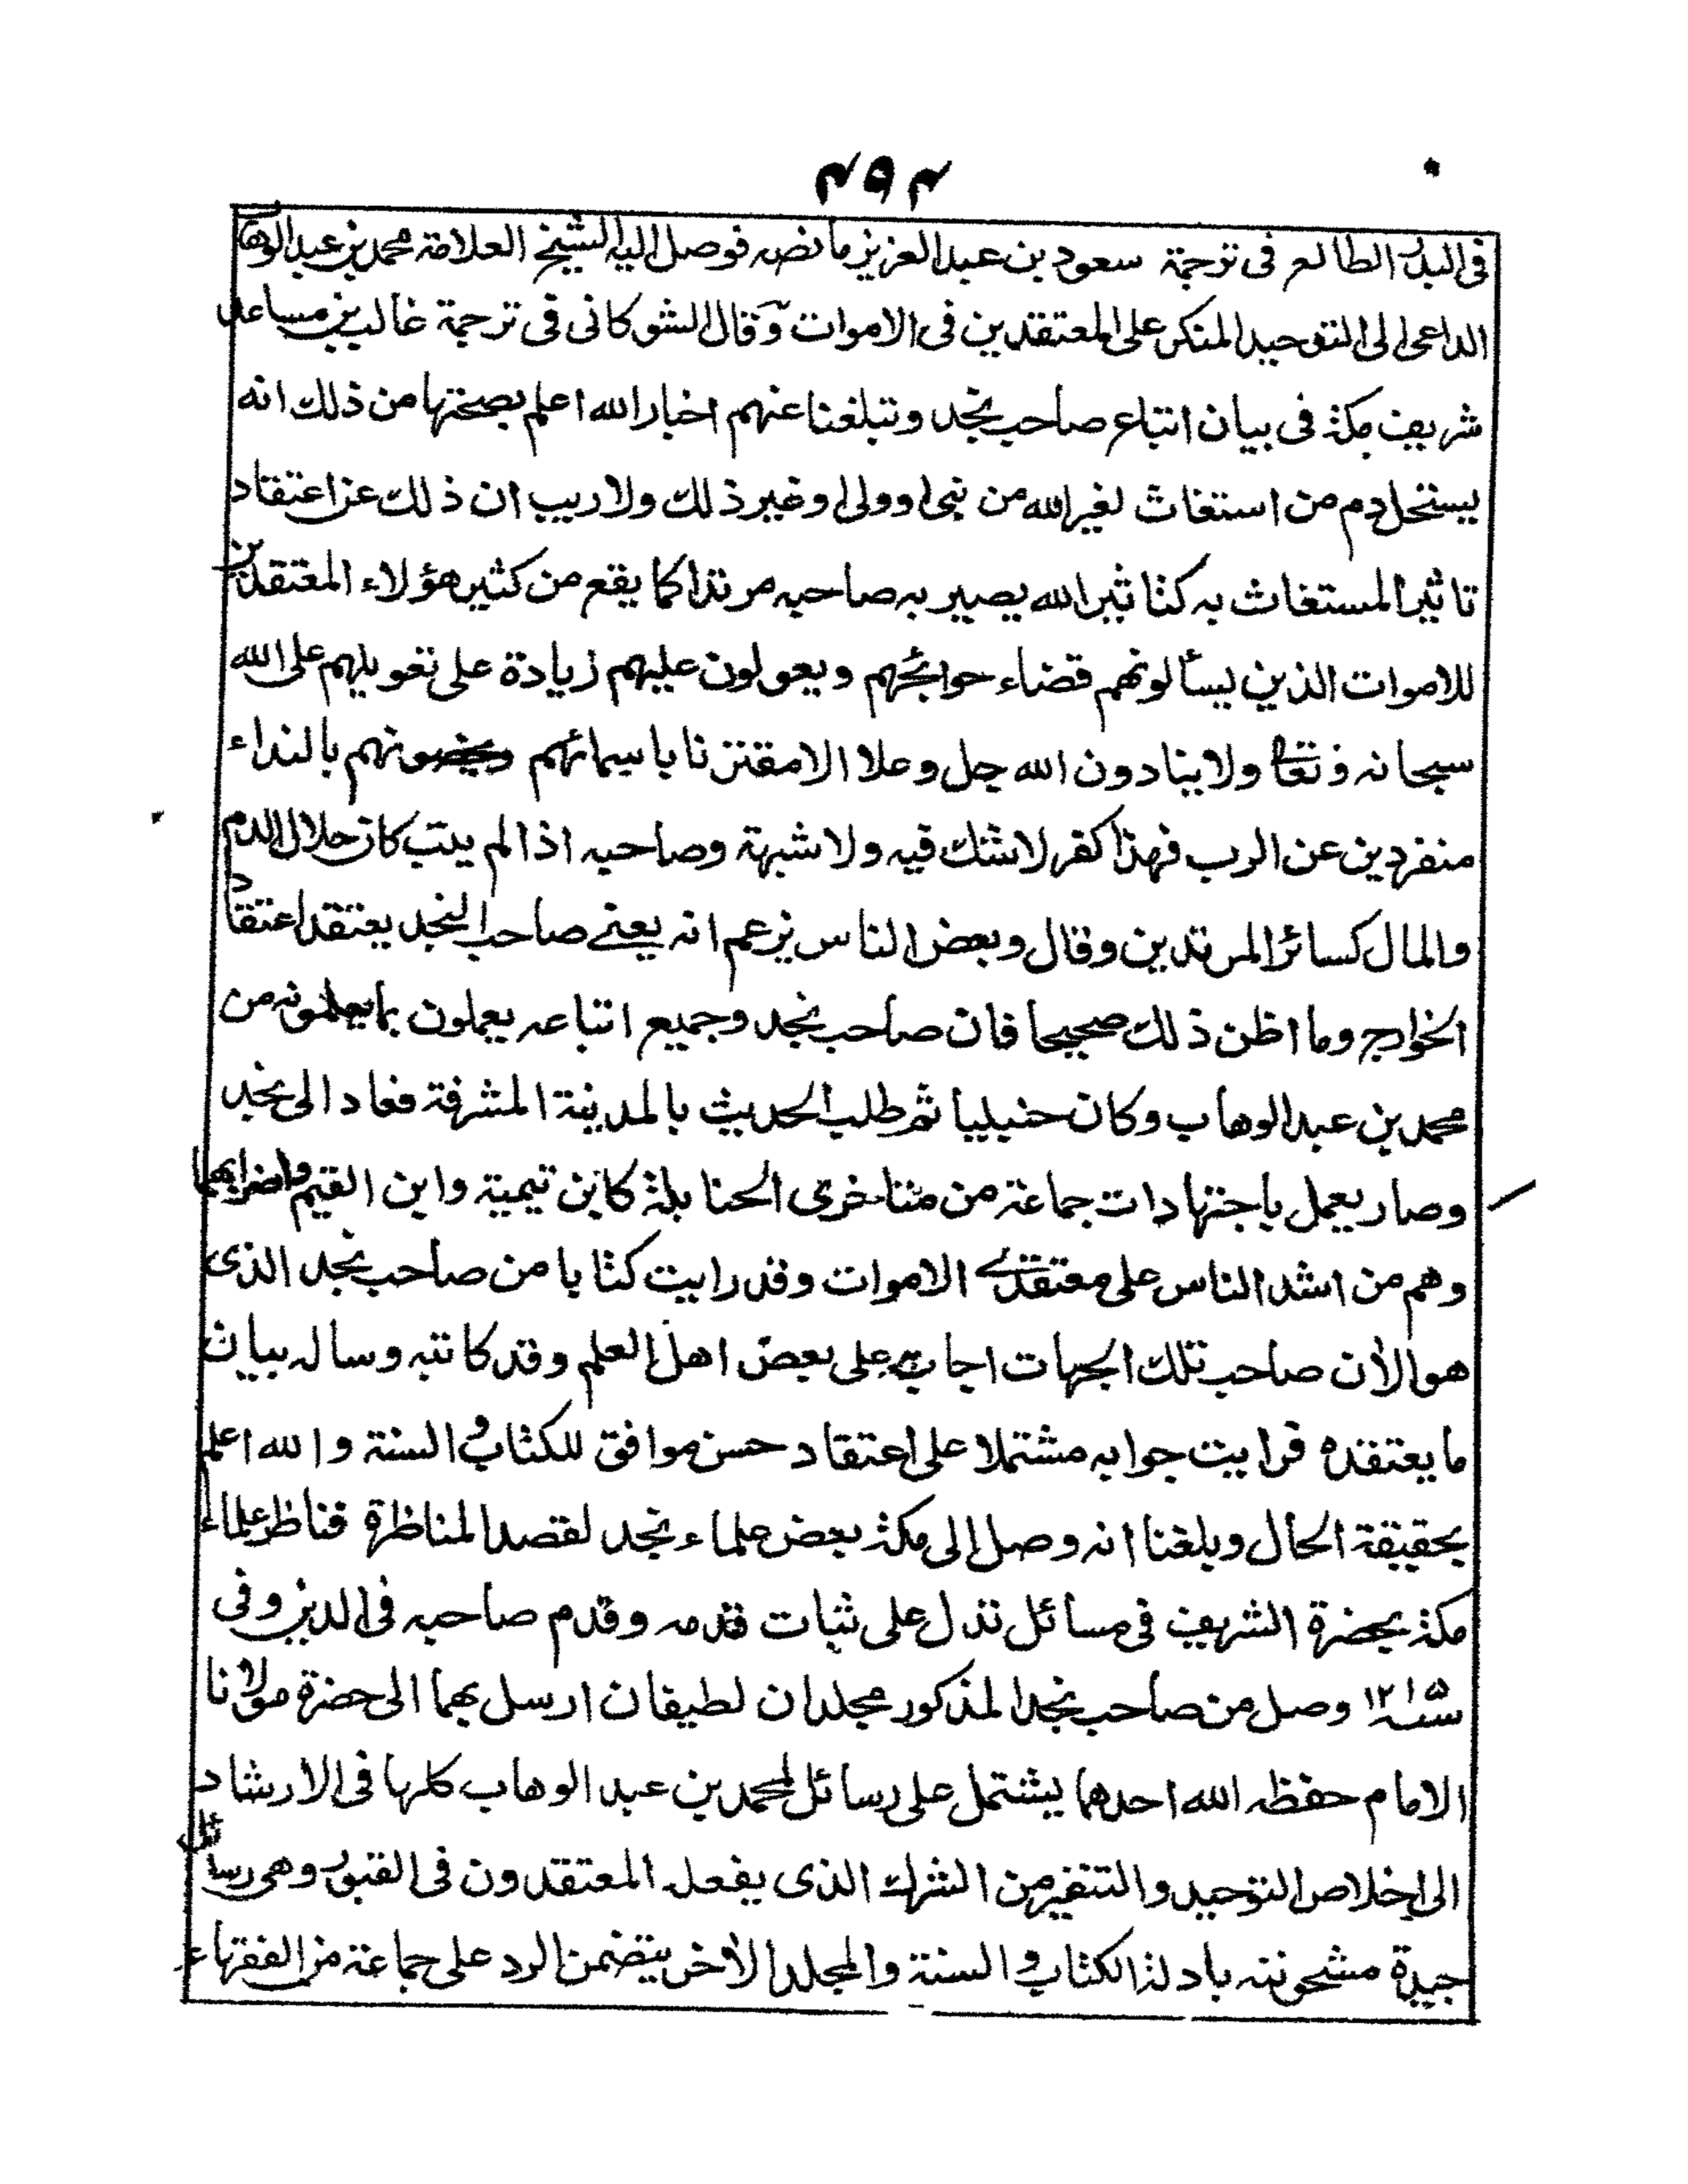 ٤٥٤
فى البدر الطالع فى ترجمة سعود بن عبد العزيز ما نصه فوصل اليه الشيخ العلامة محمد بن عبد الوهاب
الداعى الى التوحيد المنكر على المعتقدين فى الاموات وقال الشوكانى فى ترجمة غالب بن مساعد
شريف مكة فى بيان اتباع صاحب نجد وتبلغنا عنهم اخبار الله اعلم بصحتها من ذلك انه
يستحل دم من استغاث لغير الله من نبى او ولى او غير ذلك ولا ريب ان ذلك عن اعتقاد
تاثير المستغاث به كتاثير الله يصير به صاحبه مرتدا كما يقع من كثير هؤلاء المعتقدين
للاموات الذين يسألونهم قضاء حوائجهم ويعولون عليهم زيادة على تعويلهم على الله
سبحانه وتعالى ولا ينادون الله جل وعلا الا مقترنا باسمائهم ويخصونهم بالنداء
منفردين عن الرب فهذا كفر لا شك فيه ولا شبهة وصاحبه اذا لم يتب كان حلال الدم
والمال كسائر المرتدين وقال وبعض الناس يزعم انه يعنى صاحب النجد يعتقد اعتقاد
الخوارج وما اظن ذلك صحيحا فان صاحب نجد وجميع اتباعه يعملون بما يعلمونه من
محمد بن عبد الوهاب وكان حنبليا ثم طلب الحديث بالمدينة المشرفة فعاد الى نجد
وصار يعمل باجتهادات جماعة من متاخرى الحنابلة كابن تيمية وابن القيم واضرابهما
وهم من اشد الناس على معتقدى الاموات وقد رايت كتابا من صاحب نجد الذى
هو الآن صاحب تلك الجهات اجاب به على بعض اهل العلم وقد كاتبه وساله بيان
ما يعتقده فرايت جوابه مشتملا على اعتقاد حسن موافق للكتاب والسنة والله اعلم
بحقيقة الحال وبلغنا انه وصل الى مكة بعض علماء نجد لقصد المناظرة فناظر علماء
مكة بحضرة الشريف فى مسائل تدل على ثبات قدمه وقدم صاحبه فى الدين وفى
سنة ١٢١٥ وصل من صاحب نجد المذكور مجلدان لطيفان ارسل بهما الى حضرة مولانا
الامام حفظه الله احدهما يشتمل على رسائل لمحمد بن عبد الوهاب كلها فى الارشاد
الى اخلاص التوحيد والتنفير من الشرك الذى يفعله المعتقدون فى القبور وهى رسائل
جيدة مشحونة بادلة الكتاب والسنة والمجلد الآخر يتضمن الرد على جماعة من الفقهاء